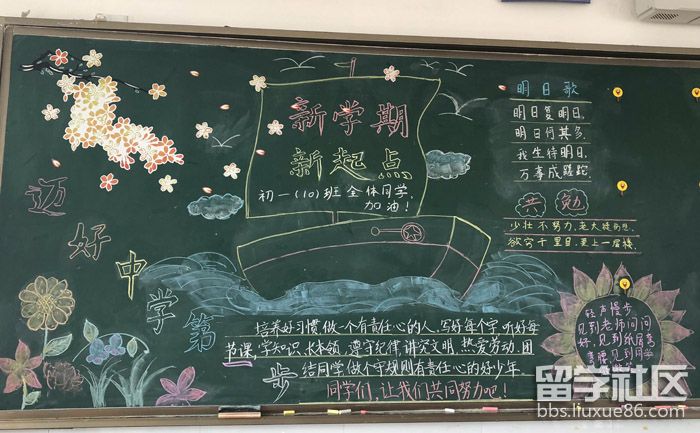 新学期
新起点
初一(10)班全体同学,
加油!
明日歌
明日复明日,
明日何其多,
我生待明日,
万事成蹉跎.
共勉
少壮不努力,老大徒伤悲.
欲穷千里目,更上一层楼.
迈好中学第一步
培养好习惯 做一个有责任心的人,写好每个字,听好每
节课,学知识,长本领,遵守纪律,讲究文明,热爱劳动,团
结同学做个守规则有责任心的好少年
同学们,让我们共同努力吧!
轻声慢步
见到老师问问
好,见到纸屑弯
弯腰,见到同学
留学社区
bbs.liuxue86.com